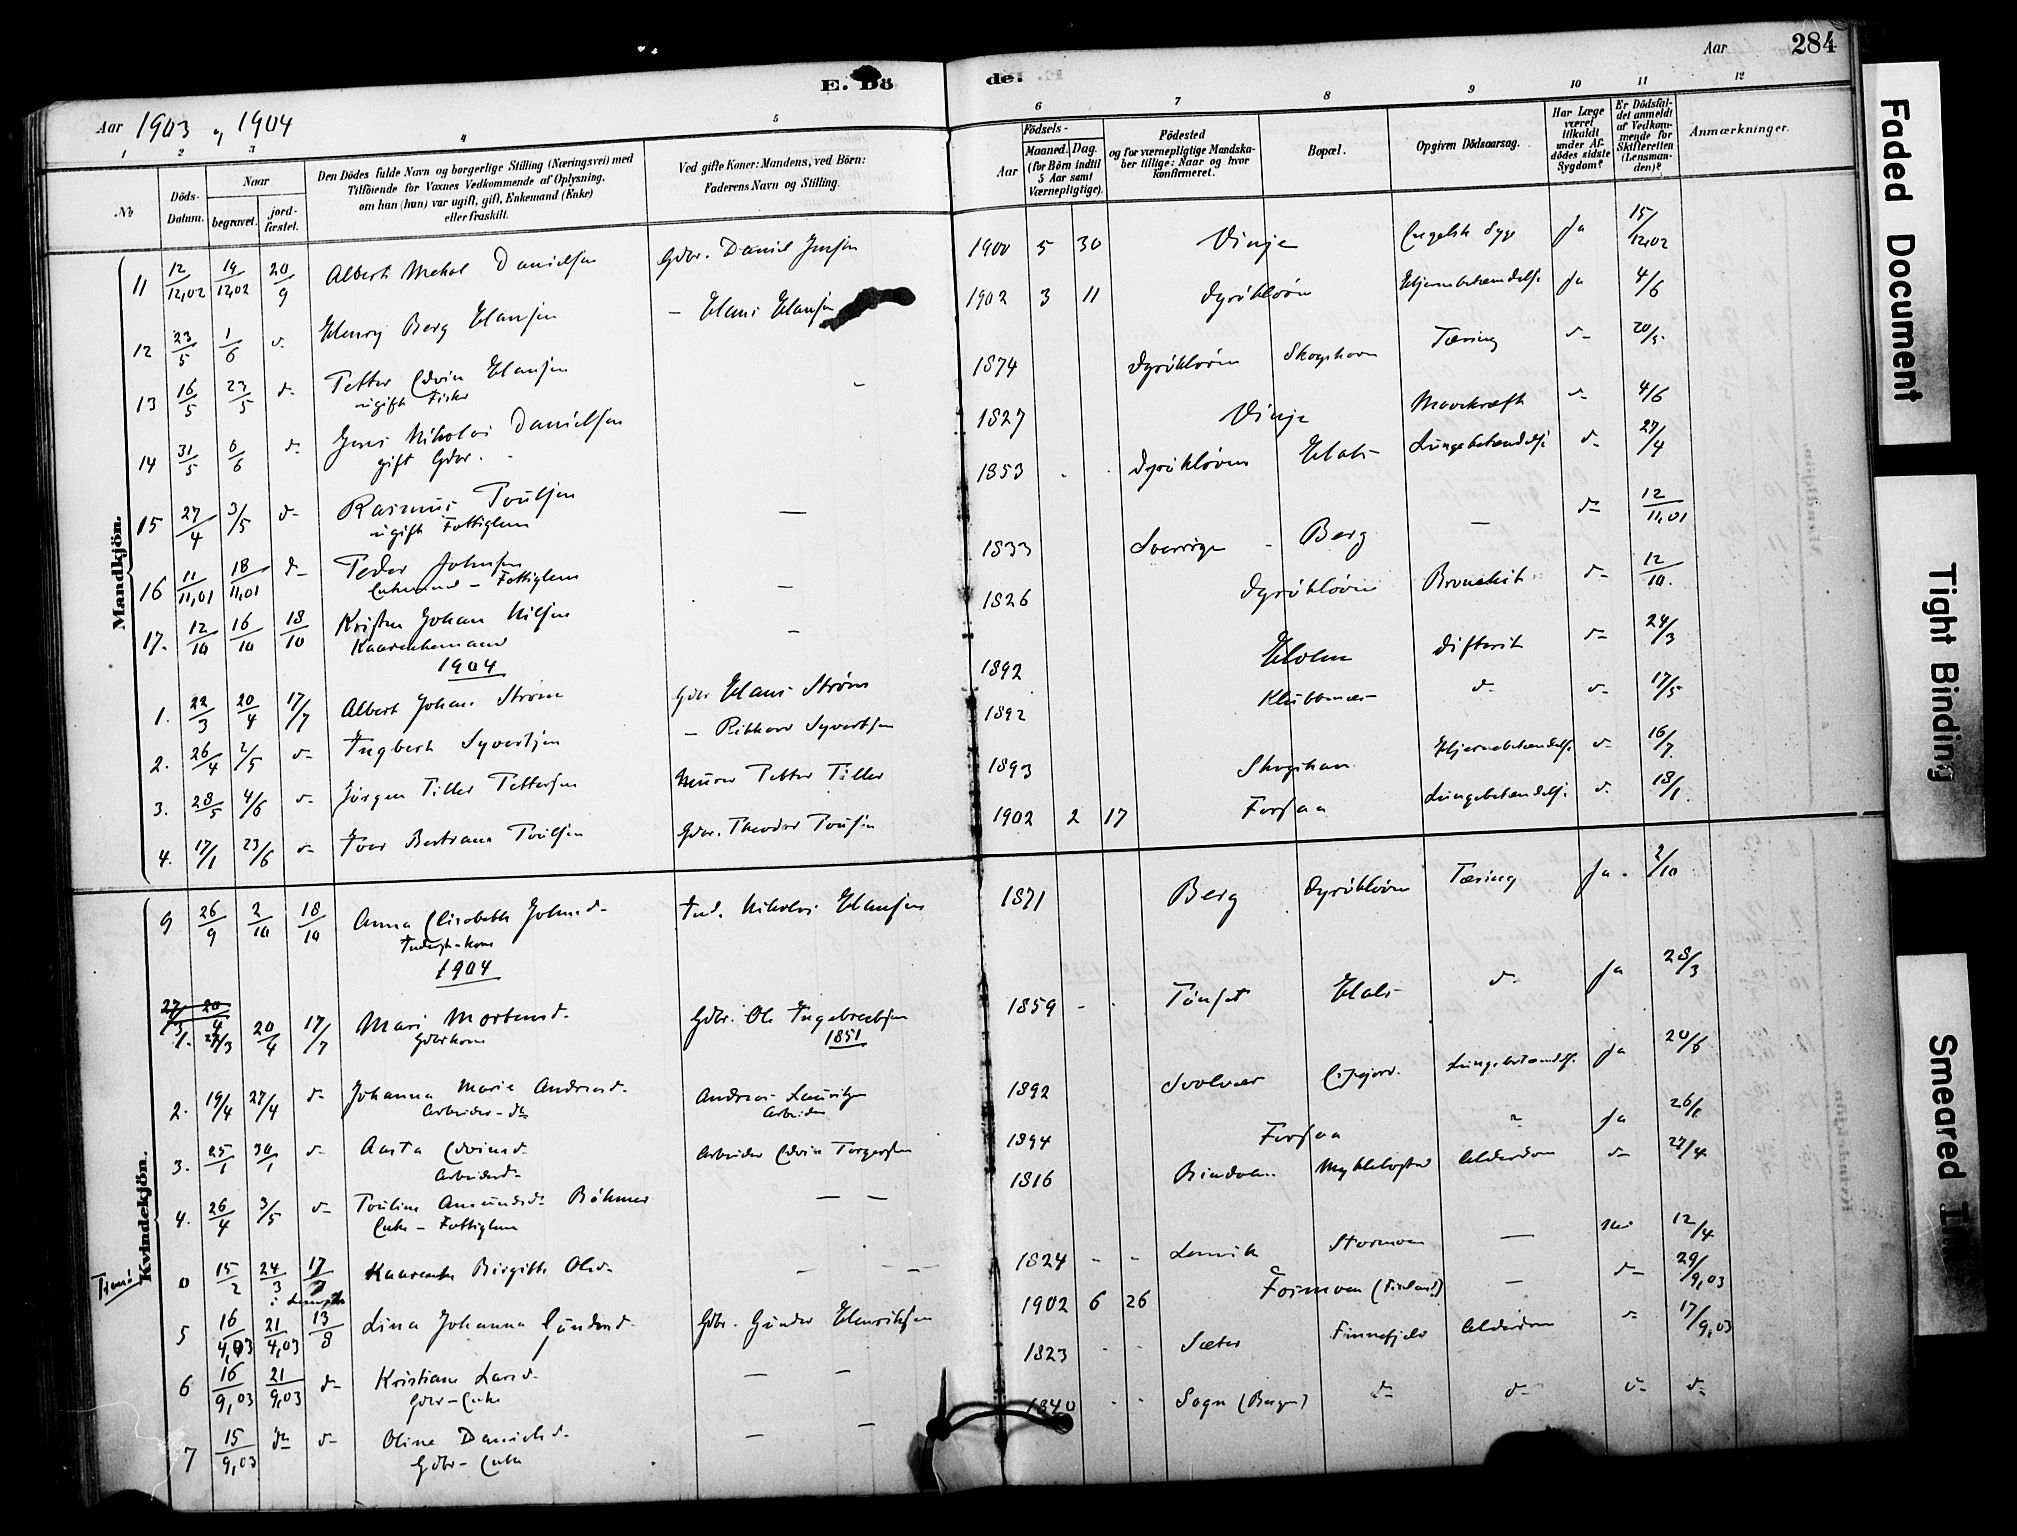 284
Aar
E. Dö
de.
Aar 1903 og 1904
1 2 3 4 5 6 7 8 9 10 11 12
No
Döds-
Datum.
Naar
begravet.
jord-
fæstet.
Den Dödes fulde Navn og borgerlige Stilling (Næringsvei) med
Tilföiende for Voxnes Vedkommende af Oplysning,
om han (hun) var ugift, gift, Enkemand (Enke)
eller fraskilt.
Ved gifte Koner: Mandens, ved Börn:
Faderens Navn og Stilling.
Födsels-
Aar
Maaned.
Dag.
(for Börn indtil
5 Aar samt
Værnepligtige).
Födested
og for værnepligtige Mandska-
ber tillige: Naar og hvor
konfirmeret.
Bopæl.
Opgiven Dödsaarsag.
Har Læge
været
tilkaldt
under Af-
dödes sidste
Sygdom?
Er Dödsfal-
det anmeldt
af Vedkom-
mende for
Skifteretten
(Lensman-
den)?
Anmærkninger.
Mandkjön.
11 12/12,02 19/12,02 20/9 Albert Mekal Danielsen Gdbr. Daniel Jensen 1900 5 30 Vinje Engelsk Syge Ja 15/12,02
12 23/5 1/6 d- Henry Berg Hansen - Hans Hansen 1902 3 11 Dyröklöven Hjernebetændelse Ja 4/6
13 16/5 23/5 d- Petter Edvin Hansen 1874 Dyröklöven Skogshavn Tæring d- 20/5
ugift Fisker
14 31/5 6/6 d- Jens Nikolai Danielsen 1827 Vinje Mavekræft d- 4/6
gift Gdbr.
15 27/4 3/5 d- Rasmus Poulsen — 1853 Dyröklöven Hals Lungebetændelse d- 27/4
ugift Fattiglem
16 11/11,01 18/11,01 d- Peder Johnsen — 1833 Sverrige Berg — d- 12/11,01
Enkemand - Fattiglem
17. 12/10 16/10 18/10 Kristen Johan Nilsen - 1826 Dyröklöven Bronchit d- 12/10.
Kaarenkemand
1904
1. 22/3 20/4 17/7 Albert Johan Ström Gdbr Hans Ström 1892 Holm Difterit d- 24/3
2. 26/4 2/5 d- Ingbert Syvertsen - Rikhard Syvertsen 1892 Klubbenes d- d- 17/5
3. 28/5 4/6 d- Jörgen Tiller Pettersen Murer Petter Tiller 1893 Skogshavn Hjernebetændelse d- 16/7
4. 17/1 23/6 d- Ivar Bertrans Poulsen Gdbr. Theodor Poulsen 1902 2 17 Forsaa Lungebetændelse d- 18/1.
Kvindekjön.
9 26/9 2/10 18/10 Anna Elisabeth Johnsd- Ind. Nikolai Hansen 1871 Berg Dyröklöven Tæring Ja. 2/10
Inderst-kone
1904
27/3 20/4
1. 27/3 20/4 17/7 Mari Mortensd- Gdbr. Ole Ingebrectsen 1859 - - Tönset Hals d- Ja 28/3
Gdbrkone 1851
2. 19/4 27/4 d- Johanna Marie Andreasd- Andreas Lauritzen 1892 Svolvær Lungebetændelse Ja 20/6
Arbeider-dtr Arbeider
3. 25/1 30/1 d- Aasta Edvinsd- Arbeider Edvin Torgersen 1894 Forsaa ? Ja 26/1
Arbeiderd-
4. 26/4 3/5 d- Pauline Amundsd- Böhmer — — 1816 Rindalen Alderdom d- 27/4
Enke - Fattiglem
0 15/2 24/3 17/7 Kaarenke Birgitte Olsd- — — 1824 - - Lenvik Stormoen — Nei 12/4
5 16/4,03 21/4,03 13/8 Lina Johanna Gundersd- Gdbr. Gunder Henriksen 1902 6 26 — d- 29/9,03
6 16/9,03 21/9,03 d- Kristiane Larsd- — — 1823 - - Sæter Finnefjeld Alderdom d- 17/9,03
Gdbr-Enke
7 15/9,03 d- d- Oline Danielsd- — — 1840 - - Sogn (Bergen) d- d- d- d-
Gdbr-Enke
Faded Document
Tight Binding
Smeared Ink